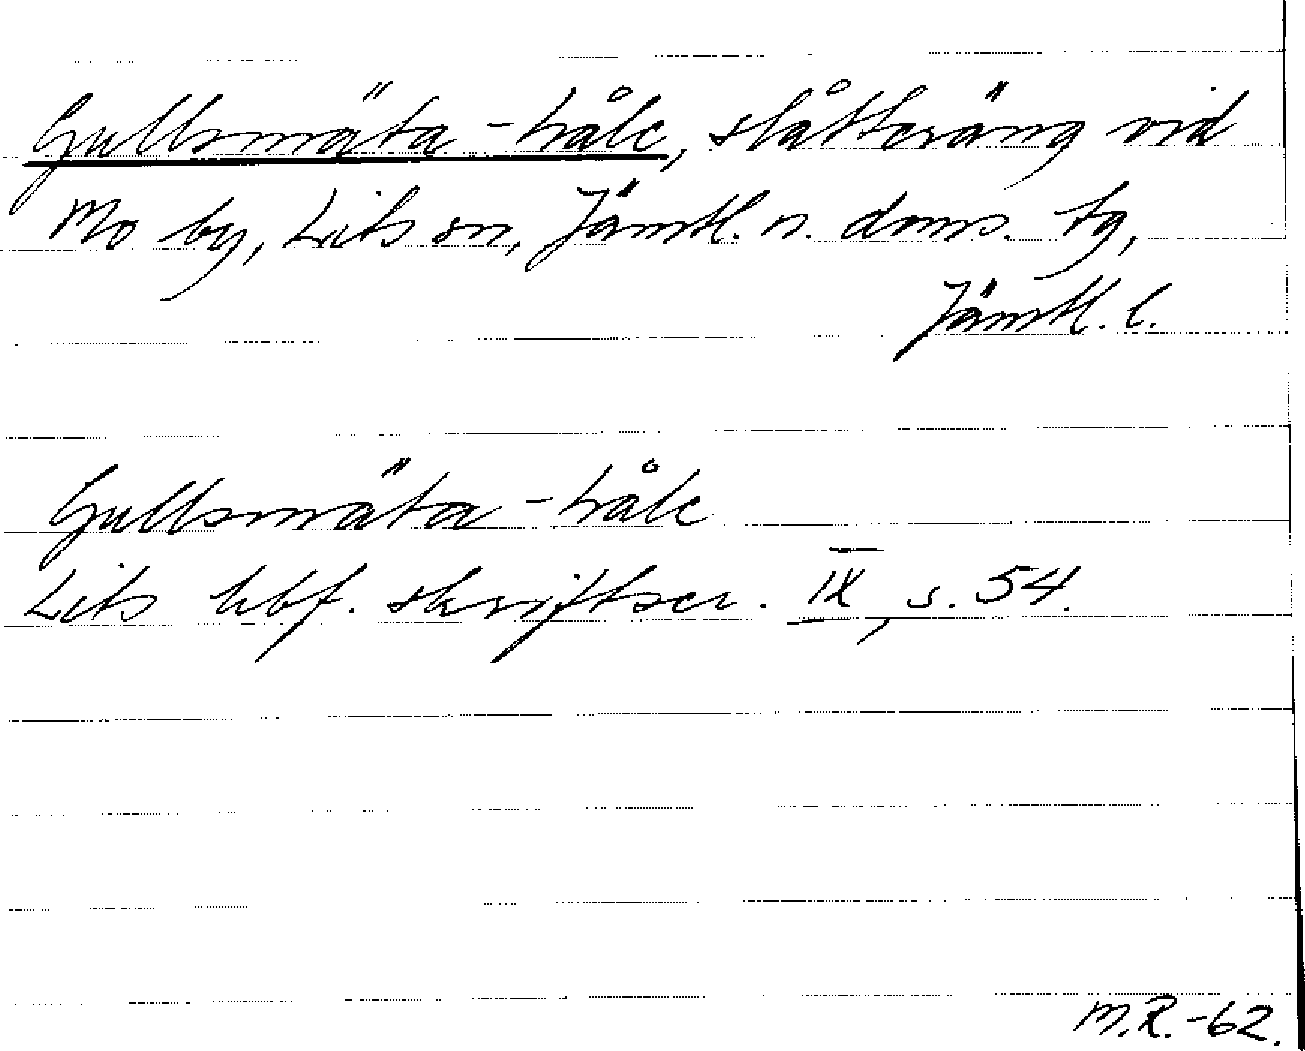 Gullsmäta-håle, slåtteräng vid
Mo by, Lits sn, Jämtl. n. doms. tg,
Jämtl. l.
Gullsmäta-håle
Lits hbf. skriftser. IX, s. 54.
M.R.-62.